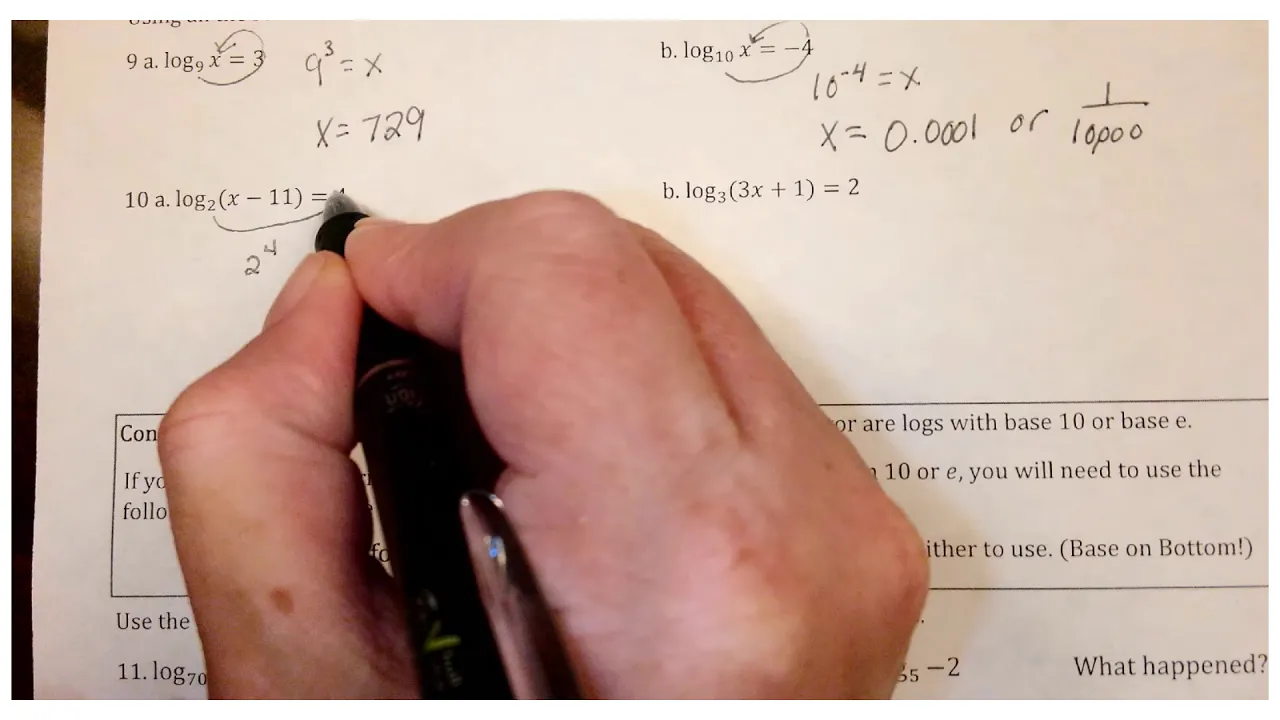 9 a. log₉ x = 3
9³ = x
x = 729
b. log₁₀ x = −4
10⁻⁴ = x
x = 0.0001 or 1/10000
10 a. log₂(x − 11) =
2⁴
b. log₃(3x + 1) = 2
or are logs with base 10 or base e.
If
10 or e, you will need to use the
to use. (Base on Bottom!)
Use the
11. log₇₀
₅ −2 What happened?